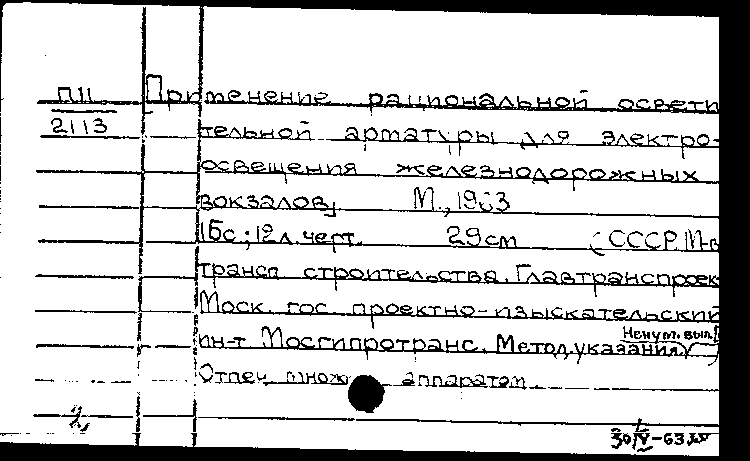 П11
2113
Применение рациональной освети
тельной арматуры для электро-
освещения железнодорожных
вокзалов. М., 1963
16с; 12л. черт. 29см (СССР. М-в
трансп строительства. Главтранспроек
Моск. гос. проектно-изыскательский
ин-т Мосгипротранс. Метод. указания)
Ненум. вып.
Отпеч множ аппаратом.
2,
30/IV-63